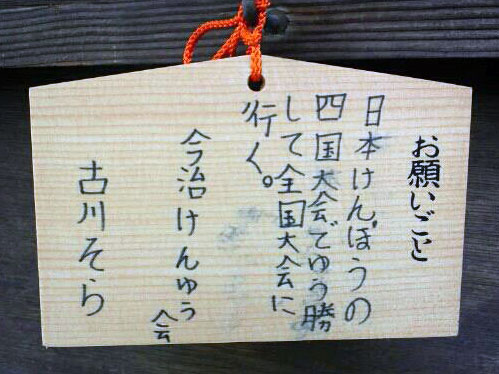 お願いごと
日本けんぽうの
四国大会でゆう勝
して全国大会に
行く。
今治けんゆう会
古川そら